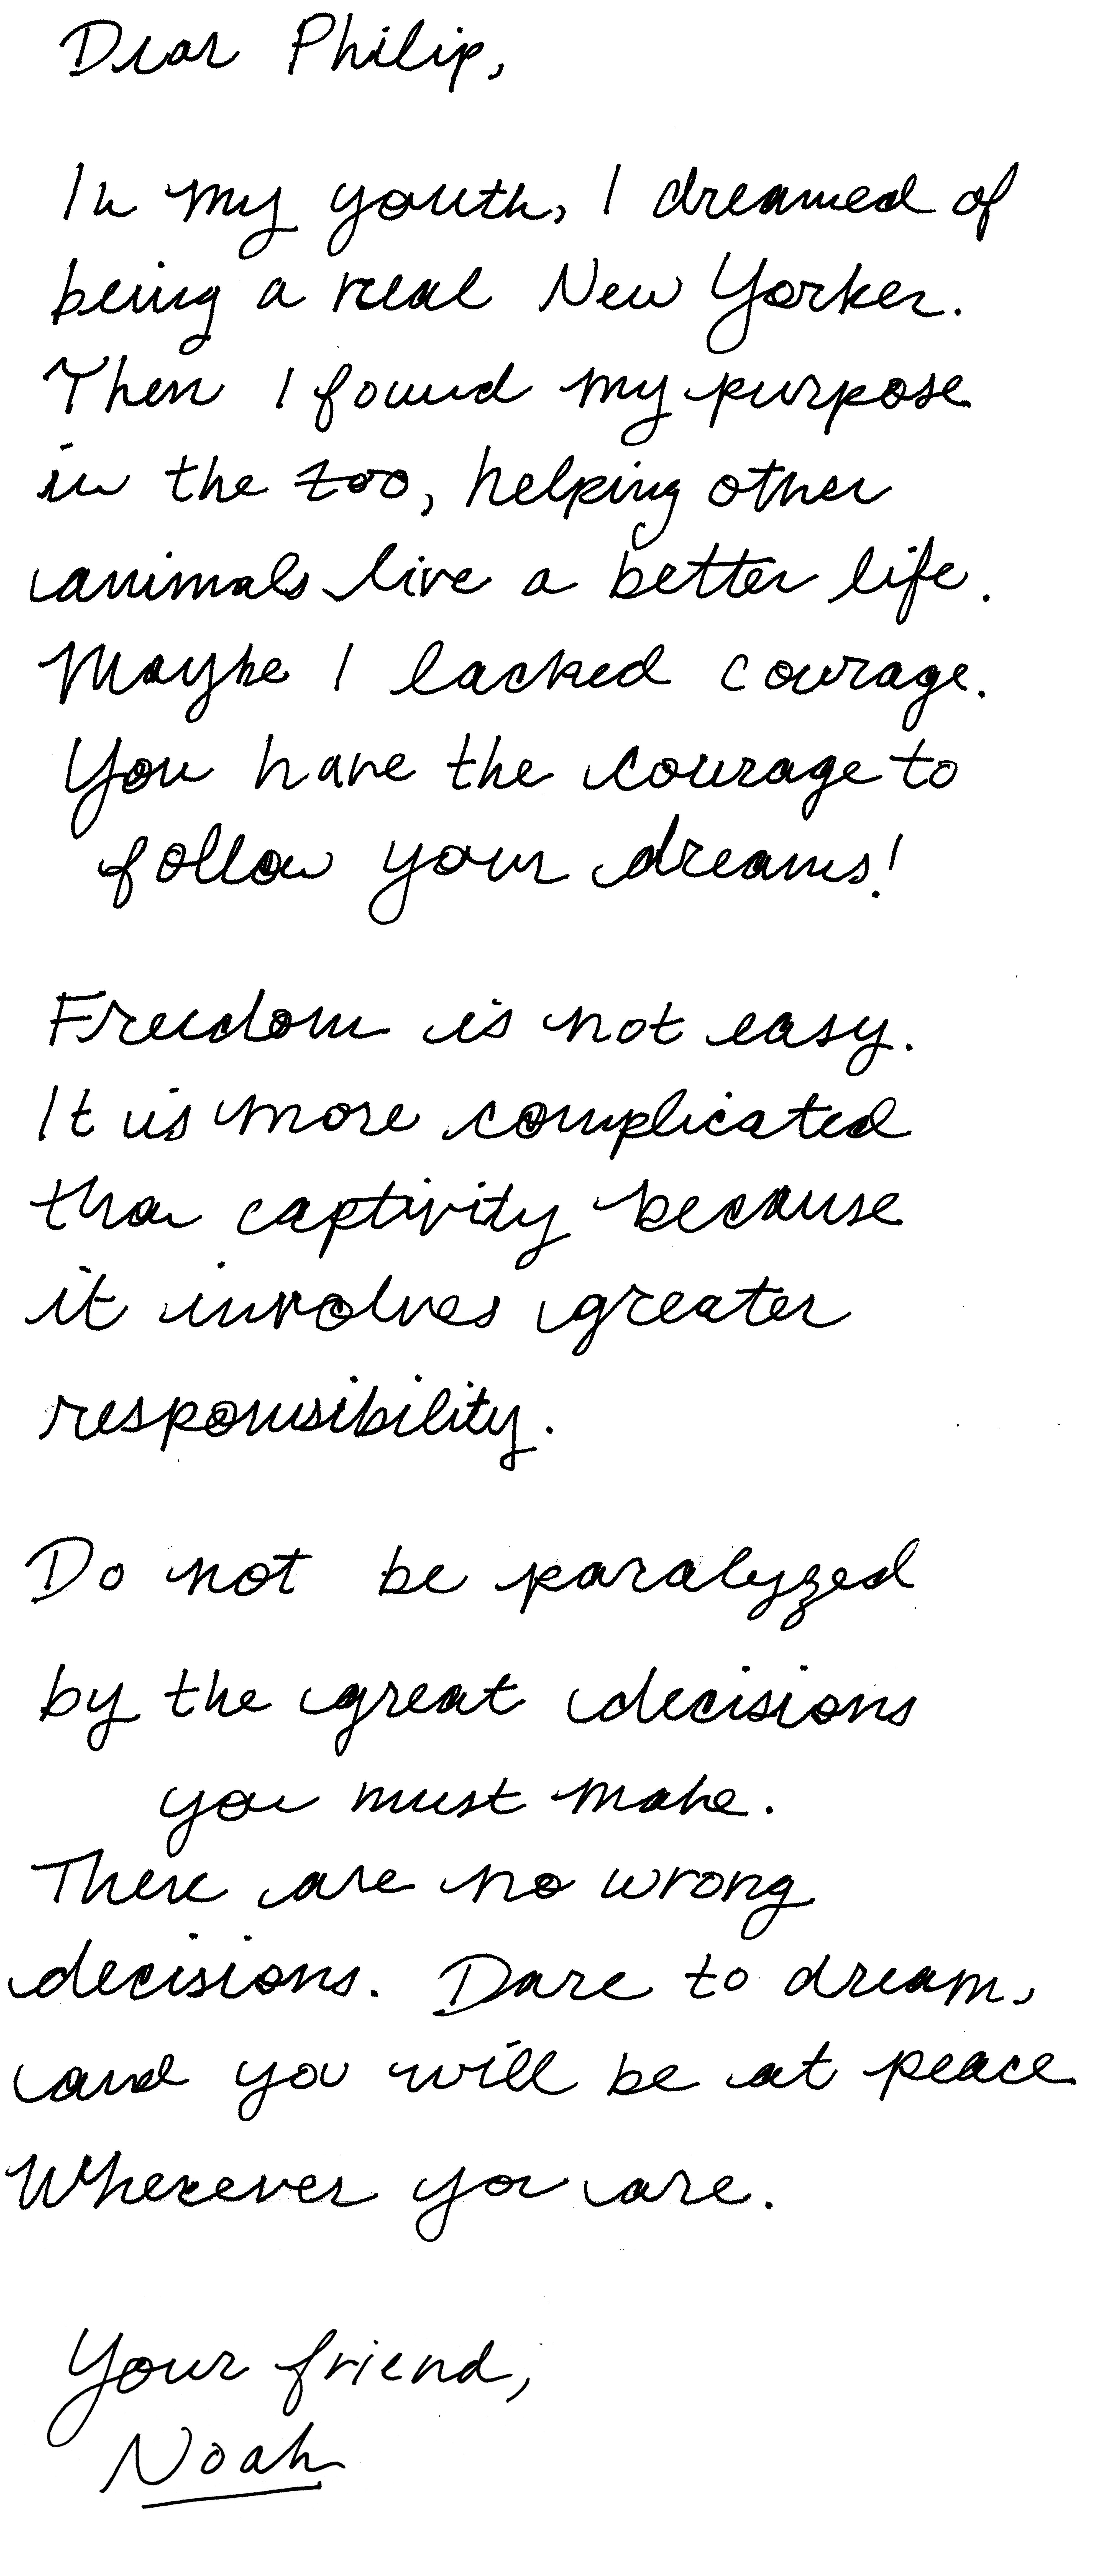 Dear Philip,
In my youth, I dreamed of
being a real New Yorker.
Then I found my purpose
in the zoo, helping other
animals live a better life.
Maybe I lacked courage.
You have the courage to
follow your dreams!
Freedom is not easy.
It is more complicated
than captivity because
it involves greater
responsibility.
Do not be paralyzed
by the great decisions
you must make.
There are no wrong
decisions. Dare to dream,
and you will be at peace
Wherever you are.
Your friend,
Noah